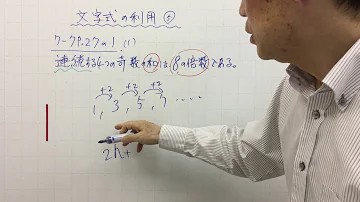 文字式の利用④
ワークP.27の1 (1)
連続する4つの奇数の和は、8の倍数である。
+2 +2 +2
1, 3, 5, 7 ....
2n+